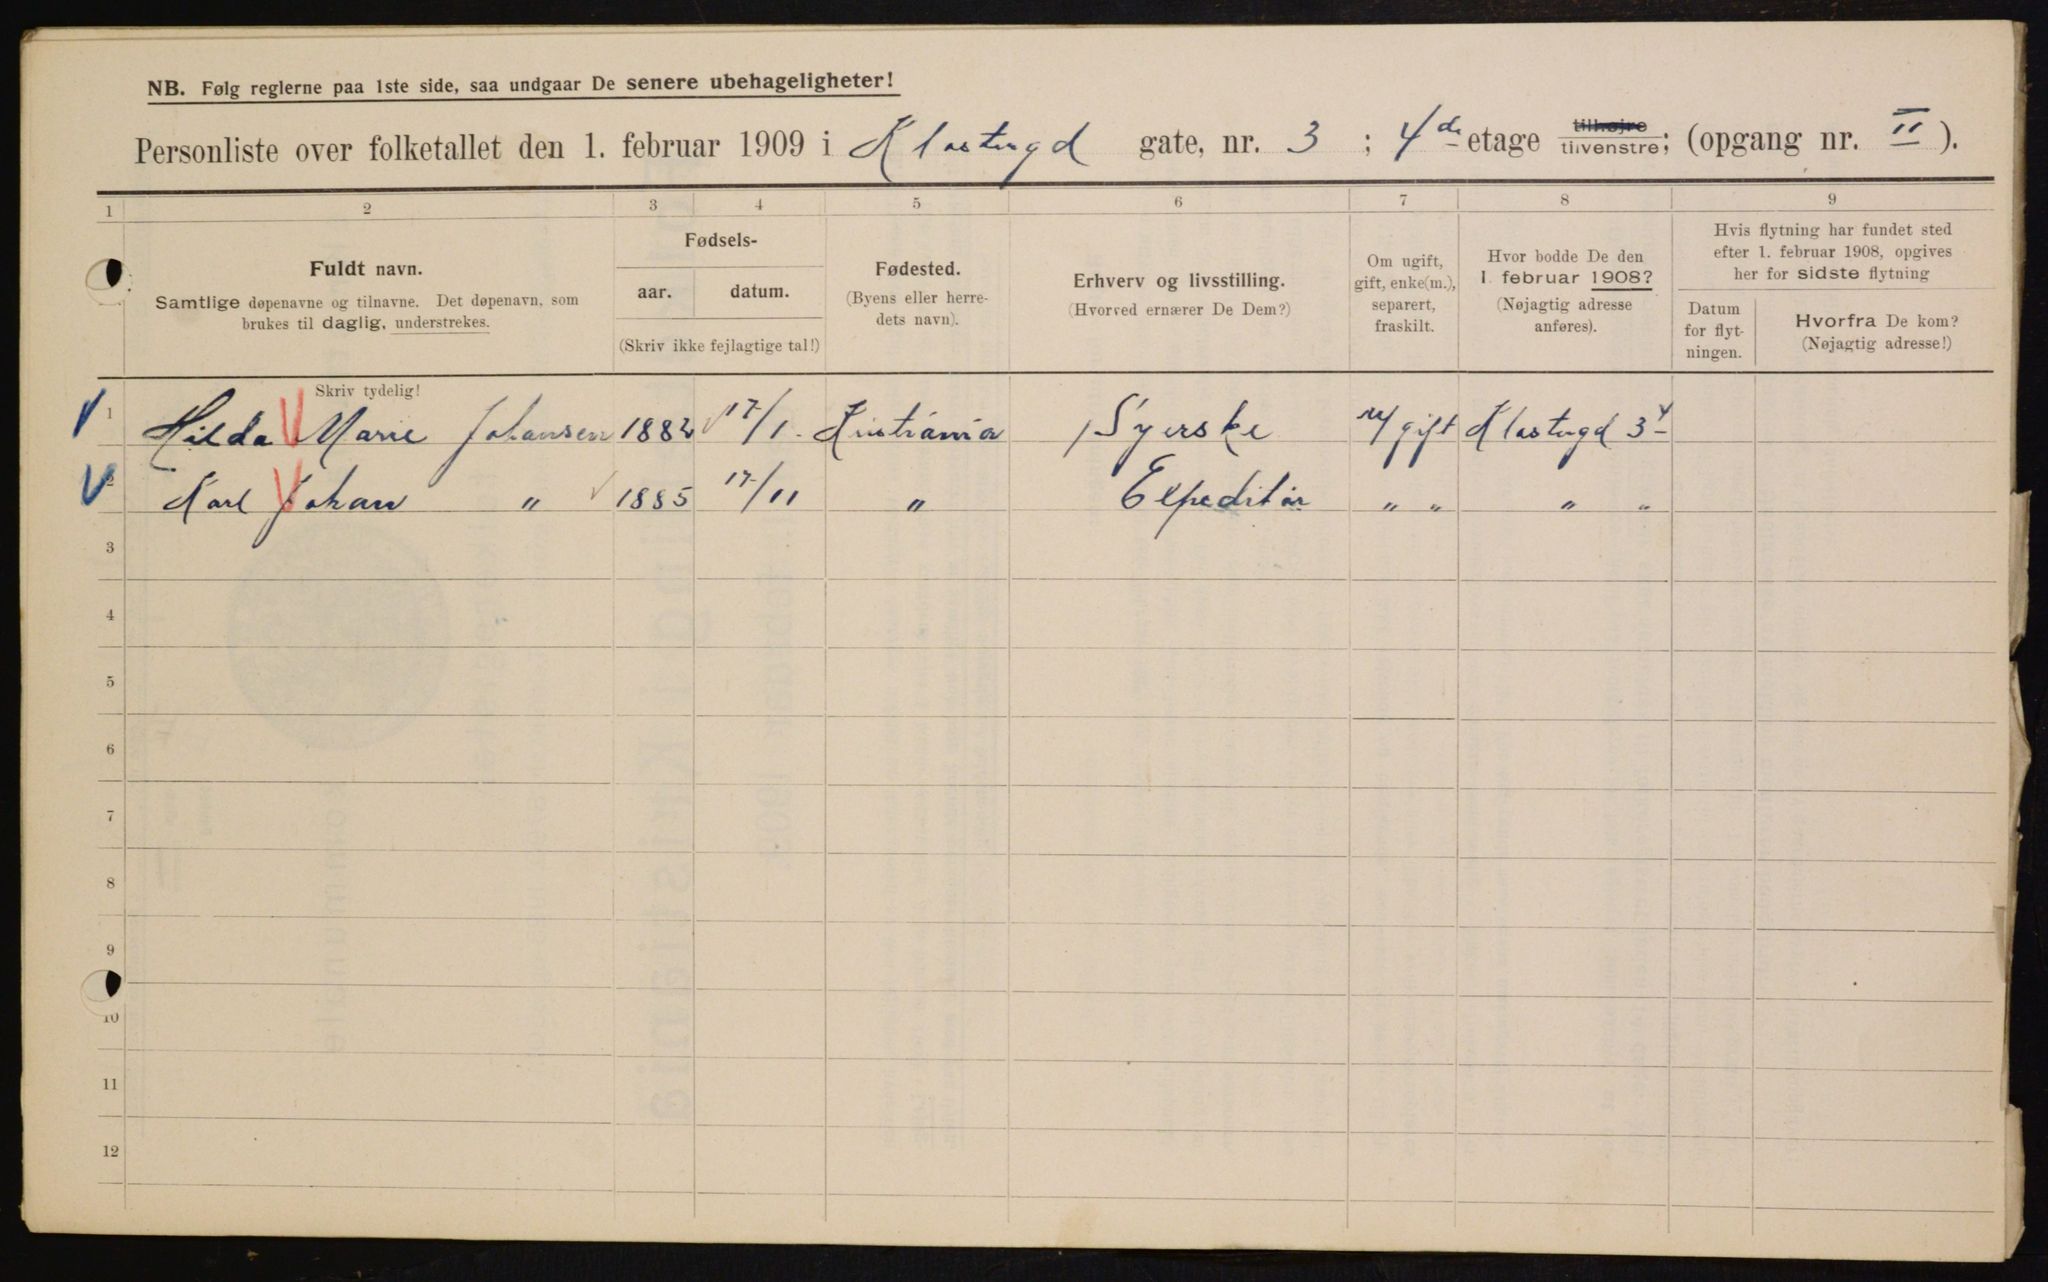 NB. Følg reglerne paa 1ste side, saa undgaar De senere ubehageligheter!
Personliste over folketallet den 1. februar 1909 i Klostergd gate, nr. 3 ; 4de etage tilhøjre tilvenstre; (opgang nr. II ).
1 2 3 4 5 6 7 8 9
Fuldt navn.
Samtlige døpenavne og tilnavne. Det døpenavn, som
brukes til daglig, understrekes.
Skriv tydelig!
Fødsels-
aar. datum.
(Skriv ikke fejlagtige tal!)
Fødested.
(Byens eller herre-
dets navn).
Erhverv og livsstilling.
(Hvorved ernærer De Dem?)
Om ugift,
gift, enke(m.),
separert,
fraskilt.
Hvor bodde De den
1. februar 1908?
(Nøjagtig adresse
anføres).
Hvis flytning har fundet sted
efter 1. februar 1908, opgives
her for sidste flytning
Datum
for flyt-
ningen.
Hvorfra De kom?
(Nøjagtig adresse!)
1 Hilda Marie Johansen 1882 17/1. Kristiania Syerske u gift Klostergd 3 4
2 Karl Johan " 1885 17/11 " Expeditør " " " "
3
4
5
6
7
8
9
10
11
12